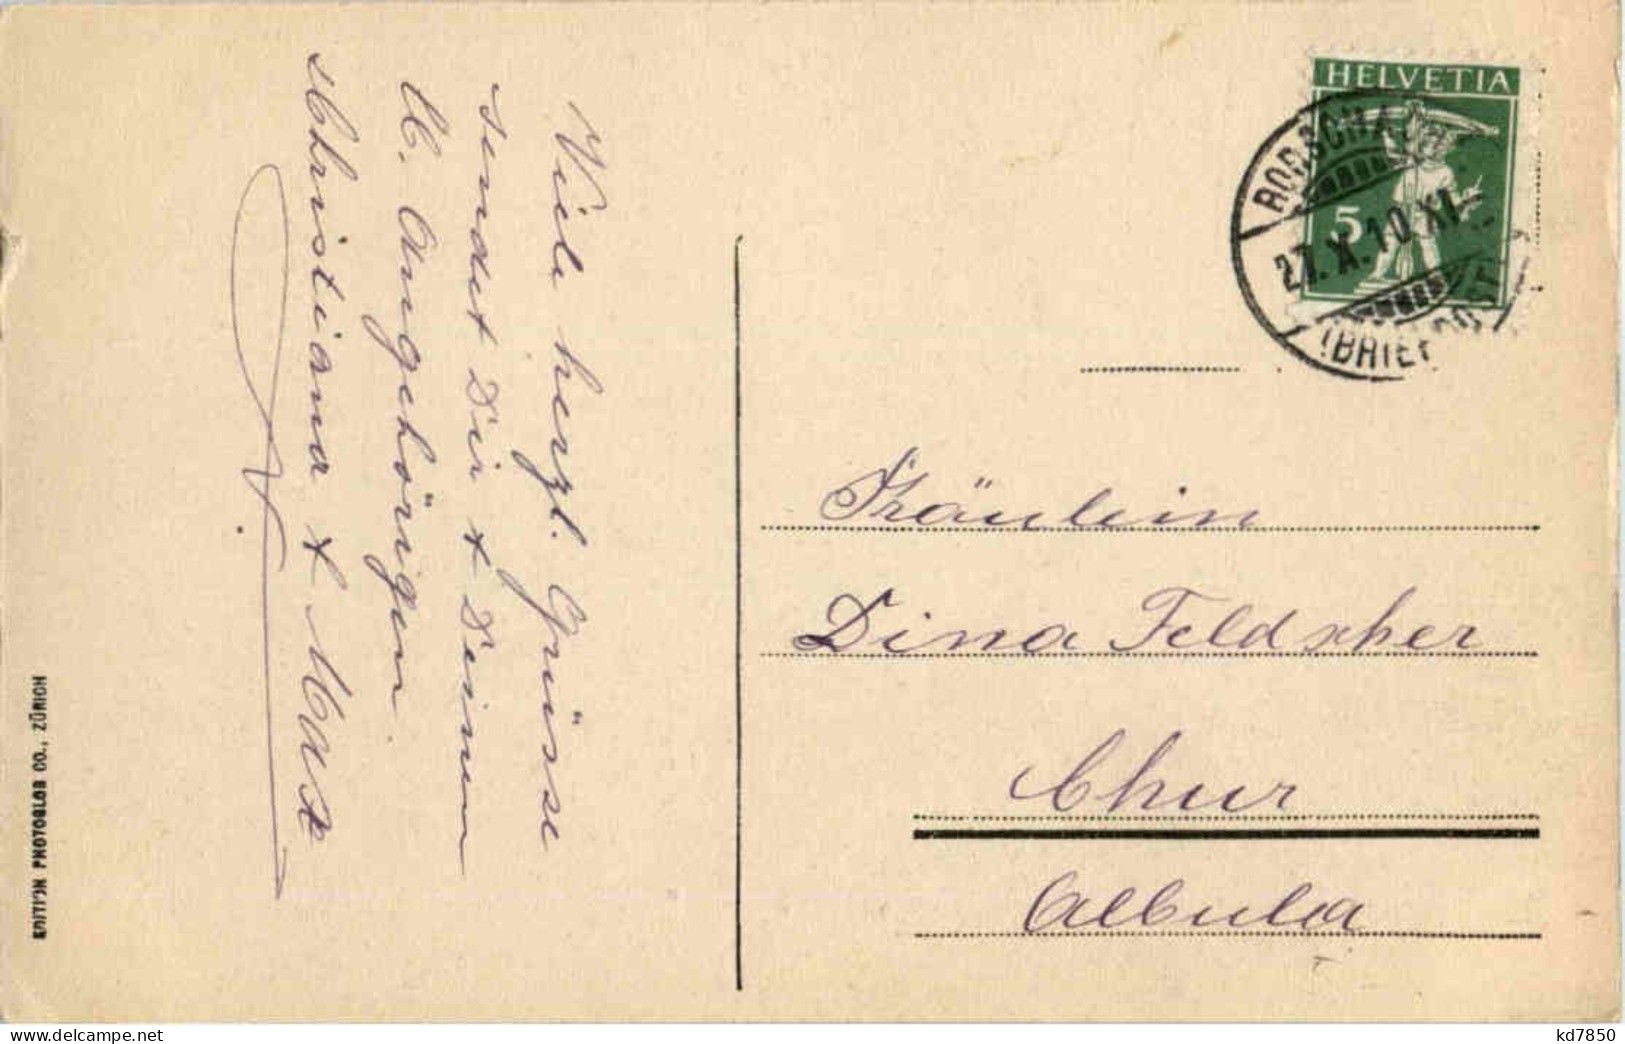 Viele herzl. Grüsse
sendet Dir & Deinen
l. Angehörigen
Christiana & Max
EDITION PHOTOGLOB CO., ZÜRICH
HELVETIA
5
RORSCHACH
27.X.10.XI
(BRIEF
Fräulein
Dina Feldscher
Chur
Albula
kd7850